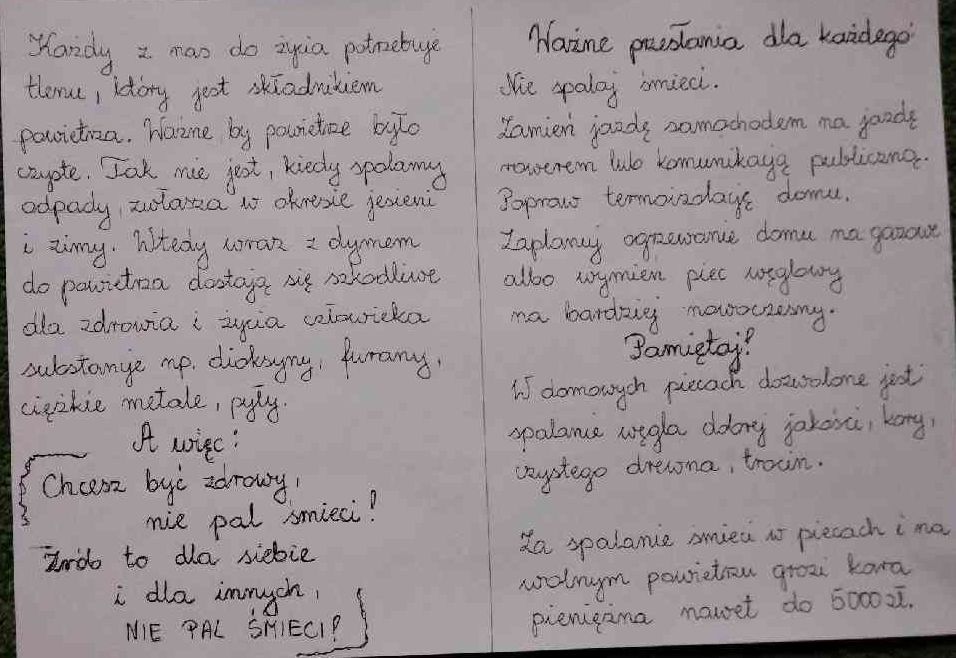 Każdy z nas do życia potrzebuje
tlenu, który jest składnikiem
powietrza. Ważne by powietrze było
czyste. Tak nie jest, kiedy spalamy
odpady, zwłasza w okresie jesieni
i zimy. Wtedy wraz z dymem
do powietrza dostają się szkodliwe
dla zdrowia i życia człowieka
substanje np. dioksyny, furany,
ciężkie metale, pyły.
A więc:
Chcesz być zdrowy,
nie pal śmieci!
Zrób to dla siebie
i dla innych,
NIE PAL ŚMIECI!
Ważne przesłania dla każdego
Nie spalaj śmieci.
Zamień jazdę samochodem na jazdę
rowerem lub komunikają publiczną.
Popraw termoizolaję domu.
Zaplanuj ogrzewanie domu na gazowe
albo wymień piec węglowy
na bardziej nowoczesny.
Pamiętaj!
W domowych piecach dozwolone jest
spalanie węgla dobrej jakości, kory,
czystego drewna, trocin.
Za spalanie śmieci w piecach i na
wolnym powietrzu grozi kara
pieniężna nawet do 5000 zł.